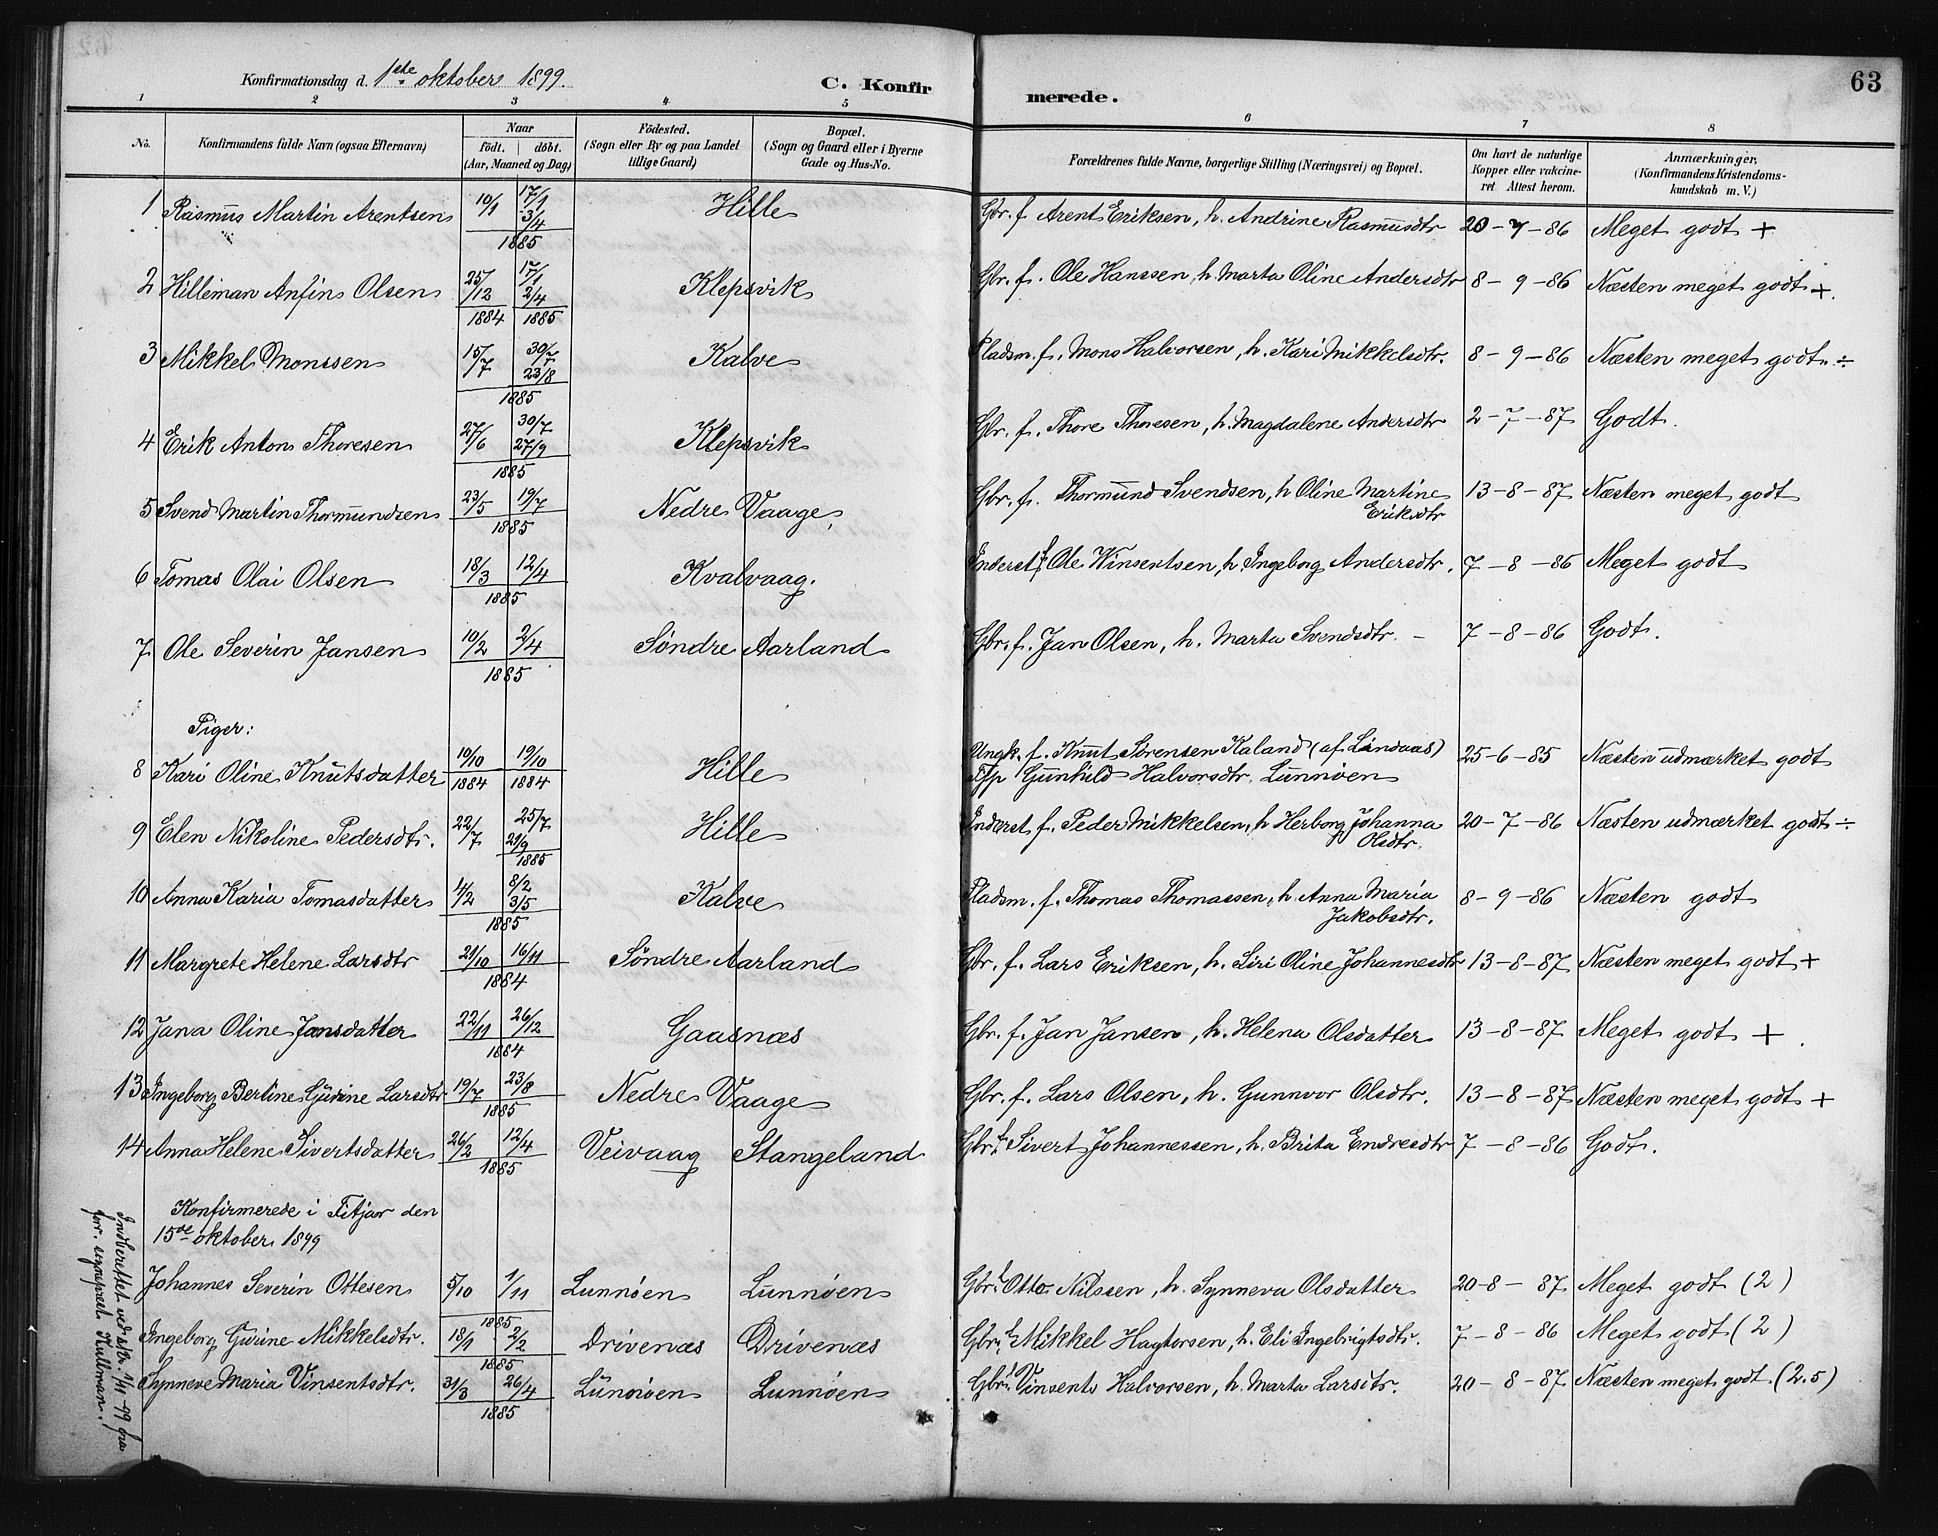 63
Konfirmationsdag d. 1ste oktober 1899.
C. Konfirmerede.
1 2 3 4 5 6 7 8
No.
Konfirmandens fulde Navn (ogsaa Efternavn)
Naar
födt. döbt.
(Aar, Maaned og Dag)
Födested.
(Sogn eller By og paa Landet
tillige Gaard)
Bopæl.
(Sogn og Gaard eller i Byerne
Gade og Hus-No.
Forældrenes fulde Navne, borgerlige Stilling (Næringsvei) og Bopæl.
Om havt de naturlige
Kopper eller vakcine-
ret. Attest herom.
Anmærkninger.
(Konfirmandens Kristendoms-
kundskab m. V.)
1 Rasmus Martin Arentsen 10/1 17/1 3/4 1885 Hille Gbr. f. Arent Eriksen, h. Andrine Rasmusdtr 20-7-86 Meget godt +
2 Hilleman Anfin Olsen 25/12 1884 17/1 2/4 1885 Klepsvik Gbr. f. Ole Hanssen, h. Marta Oline Andersdtr 8-9-86 Næsten meget godt +.
3 Mikkel Monssen 15/7 30/7 23/8 1885 Kalve Pladsm. f. Mons Halvorsen, h. Kari Mikkelsdtr. 8-9-86 Næsten meget godt ÷
4 Erik Anton Thoresen 27/6 30/7 27/9 1885 Klepsvik Gbr. f. Thore Thoresen, h. Magdalene Andersdtr 2-7-87 Godt.
5 Svend Martin Thormundsen 23/5 19/7 1885 Nedre Vaage Gbr. f. Thormund Svendsen, h Oline Martine
Eriksdtr 13-8-87 Næsten meget godt
6 Tomas Olai Olsen 18/3 12/4 1885 Kvalvaag. Inderst f. Ole Winsentsen, h Ingeborg Andersdtr. 7-8-86 Meget godt
7 Ole Severin Jansen 10/2 2/4 1885 Söndre Aarland Gbr. f. Jan Olsen, h. Marta Svendsdtr. - 7-8-86 Godt.
Piger:
8 Kari Oline Knutsdatter 10/10 1884 19/10 1884 Hille Ungk. f. Knut Sørensen Kaland (af Lindaas)
Gunhild Halvorsdtr. Lunnöen 25-6-85 Næsten udmærket godt
9 Elen Nikoline Pedersdtr. 22/7 25/7 21/9 1885 Hille Inderst f. Peder Mikkelsen, h Herborg Johanna
Olsdtr. 20-7-86 Næsten udmærket godt ÷
10 Anna Karia Tomasdatter 4/2 8/2 3/5 1885 Kalve Pladsm. f. Thomas Thomassen, h. Anna Maria
Jakobsdtr. 8-9-86 Næsten godt
11 Margrete Helene Larsdtr 21/10 16/11 1884 Söndre Aarland Gbr. f. Lars Eriksen, h. Siri Oline Johannesdtr 13-8-87 Næsten meget godt +
12 Jana Oline Jansdatter 22/11 26/12 1884 Gaasnæs Gbr. f. Jan Jansen, h. Helena Olsdatter 13-8-87 Meget godt +
13 Ingeborg Bertine Gurine Larsdtr 19/7 23/8 1885 Nedre Vaage Gbr. f. Lars Olsen, h. Gunnvor Olsdtr. 13-8-87 Næsten meget godt +
14 Anna Helene Sivertsdatter 26/2 12/4 1885 Veivaag Stangeland Gbr. f. Sivert Johannessen, h. Brita Endresdtr 7-8-86 Godt.
Konfirmerede i Fitjar den
15de oktober 1899
Johannes Severin Ottesen 5/10 1/11 1885 Lunnöen Lunnöen Gbr. f. Otto Nilssen, h. Synneva Olsdatter 20-8-87 Meget godt (2)
Ingeborg Gurine Mikkelsdtr. 18/1 2/2 1885 Drivenæs Drivenæs Gbr. f. Mikkel Hagtorsen, h. Eli Ingebrigtsdtr. 7-8-86 Meget godt (2)
Synneve Maria Vinsentsdtr. 31/3 26/4 1885 Lunnöen Lunnöen Gbr. f. Vinsents Halvorsen, h. Marta Larsdtr. 20-8-87 Næsten meget godt (2.5)
Indberettet ved skr. 1/11-99 fra
for. sognepræst Kullman.